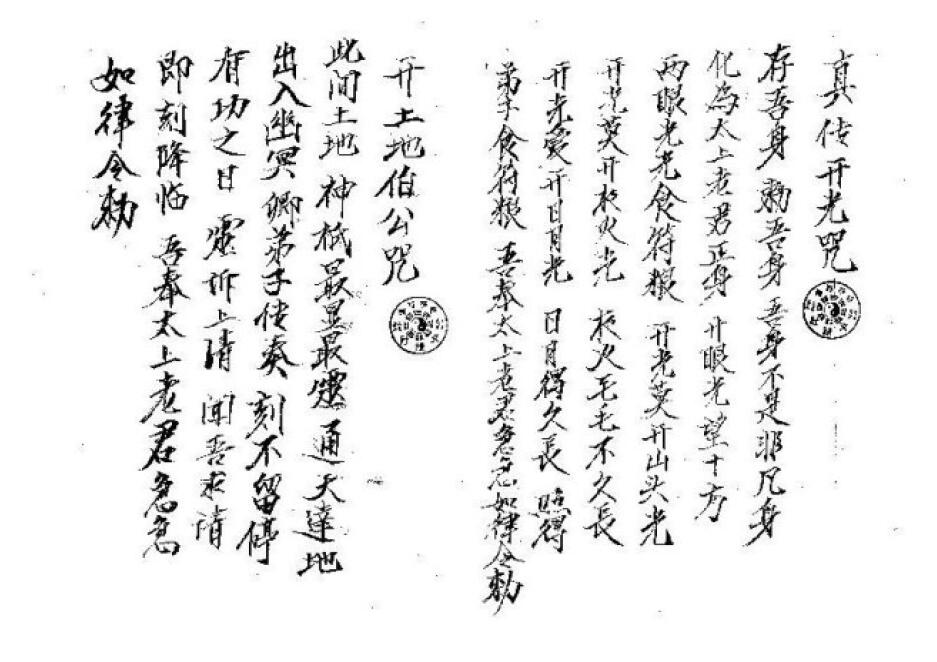 真传开光咒
存吾身 勅吾身 吾身不是非凡身
化為太上老君正身 开眼光望十方
两眼光光食符粮 开光莫开山头光
开光莫开秋火光 秋火毛毛不久長
开光爱开日月光 日月得久長 照得
弟子食符粮 吾奉太上老君急急如律令勅
开土地伯公咒
此间土地 神祇最显最靈 通天達地
出入幽冥 卿弟子传奏 刻不留停
有功之日 靈 上清 闻吾求请
即刻降临 吾奉太上老君急急
如律令勅